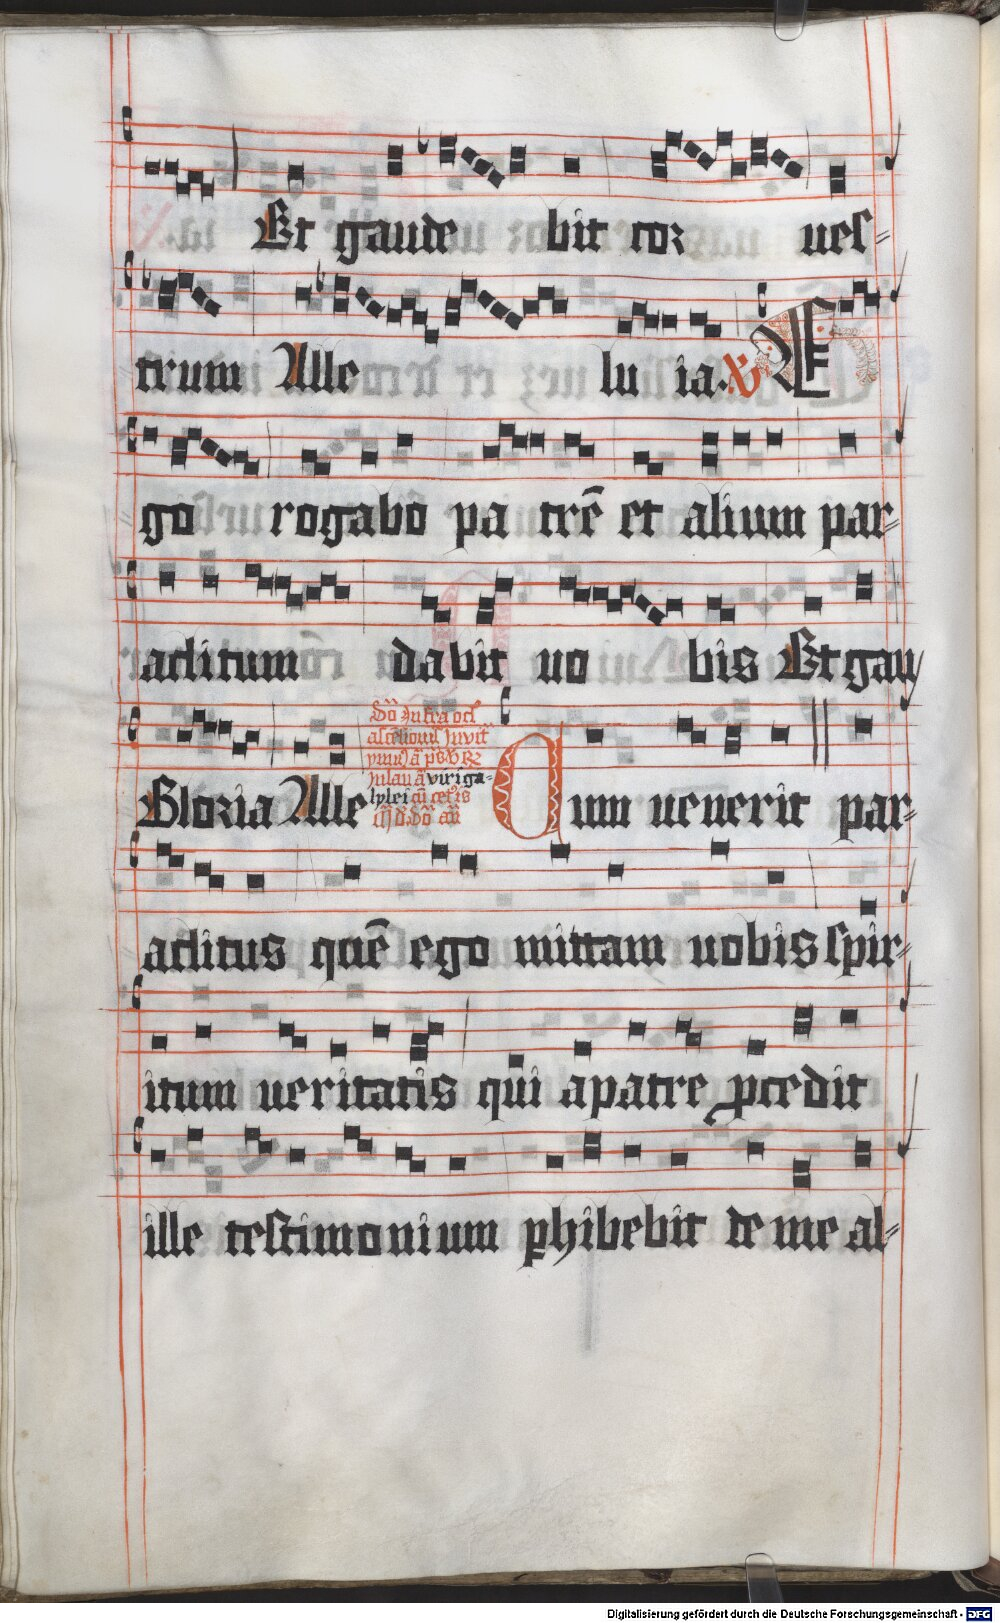 Et gaude bit cor ues=
trum Alle lu ia. V E
go rogabo pa trē et alium par=
aclitum da bit uo bis Et gau
Gloria Alle
viri ga=
lylei
Cum uenerit par=
aclitus quē ego mittam uobis spir=
itum ueritatis qui apatre pcedit
ille testimonium phibebit de me al=
Digitalisierung gefördert durch die Deutsche Forschungsgemeinschaft - DFG